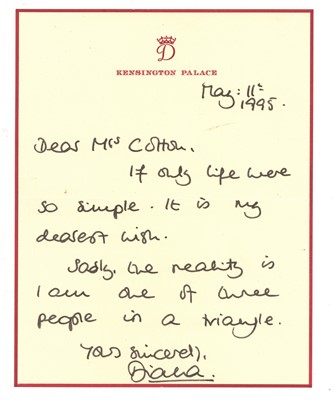 D
KENSINGTON PALACE
May: 11th
1995.
Dear Mrs Cotton.
If only life were
so simple. It is my
dearest wish.
Sadly, the reality is
I am one of three
people in a triangle.
Yours sincerely,
Diana.